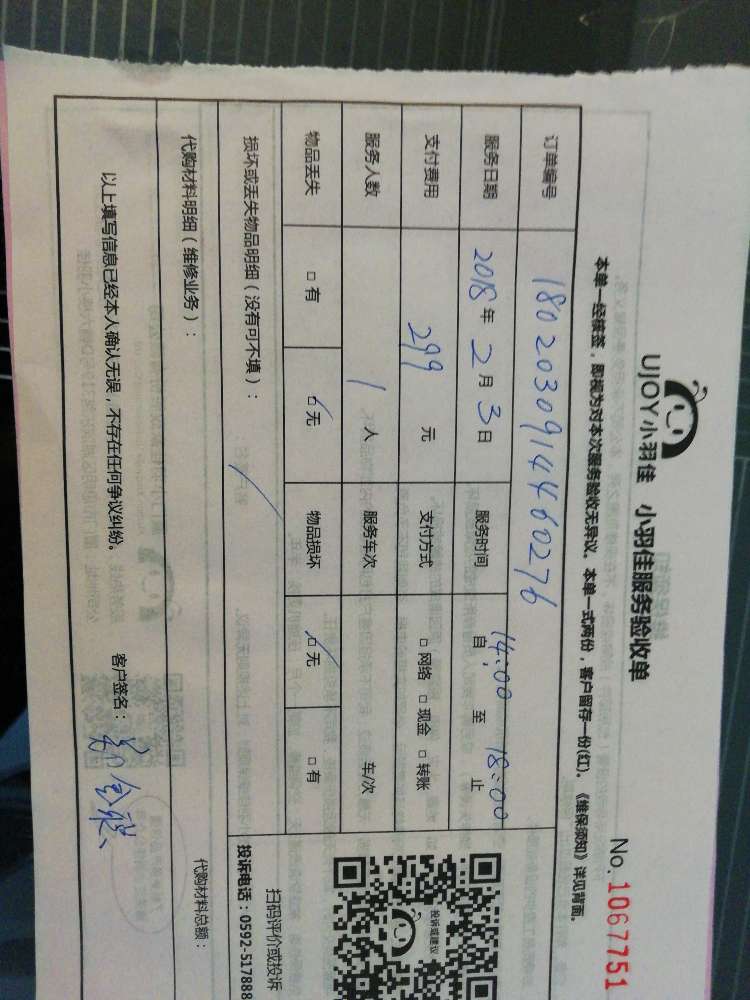 UJOY小羽佳 小羽佳服务验收单
No. 1067751
本单一经核签，即视为对本次服务验收无异议。本单一式两份，客户留存一份(红)。《维保须知》详见背面。
订单编号 1802030914460276
服务日期 2018年2月3日 服务时间 自14:00至18:00止
支付费用 299元 支付方式 □网络 □现金 □转账
服务人数 1人 服务车次 车/次
物品丢失 □有 □无 物品损坏 □无 □有
损坏或丢失物品明细（没有可不填）：
投诉或建议
扫码评价或投诉
投诉电话：0592-517888
代购材料明细（维修业务）：
代购材料总额：
以上填写信息已经本人确认无误，不存在任何争议纠纷。 客户签名：